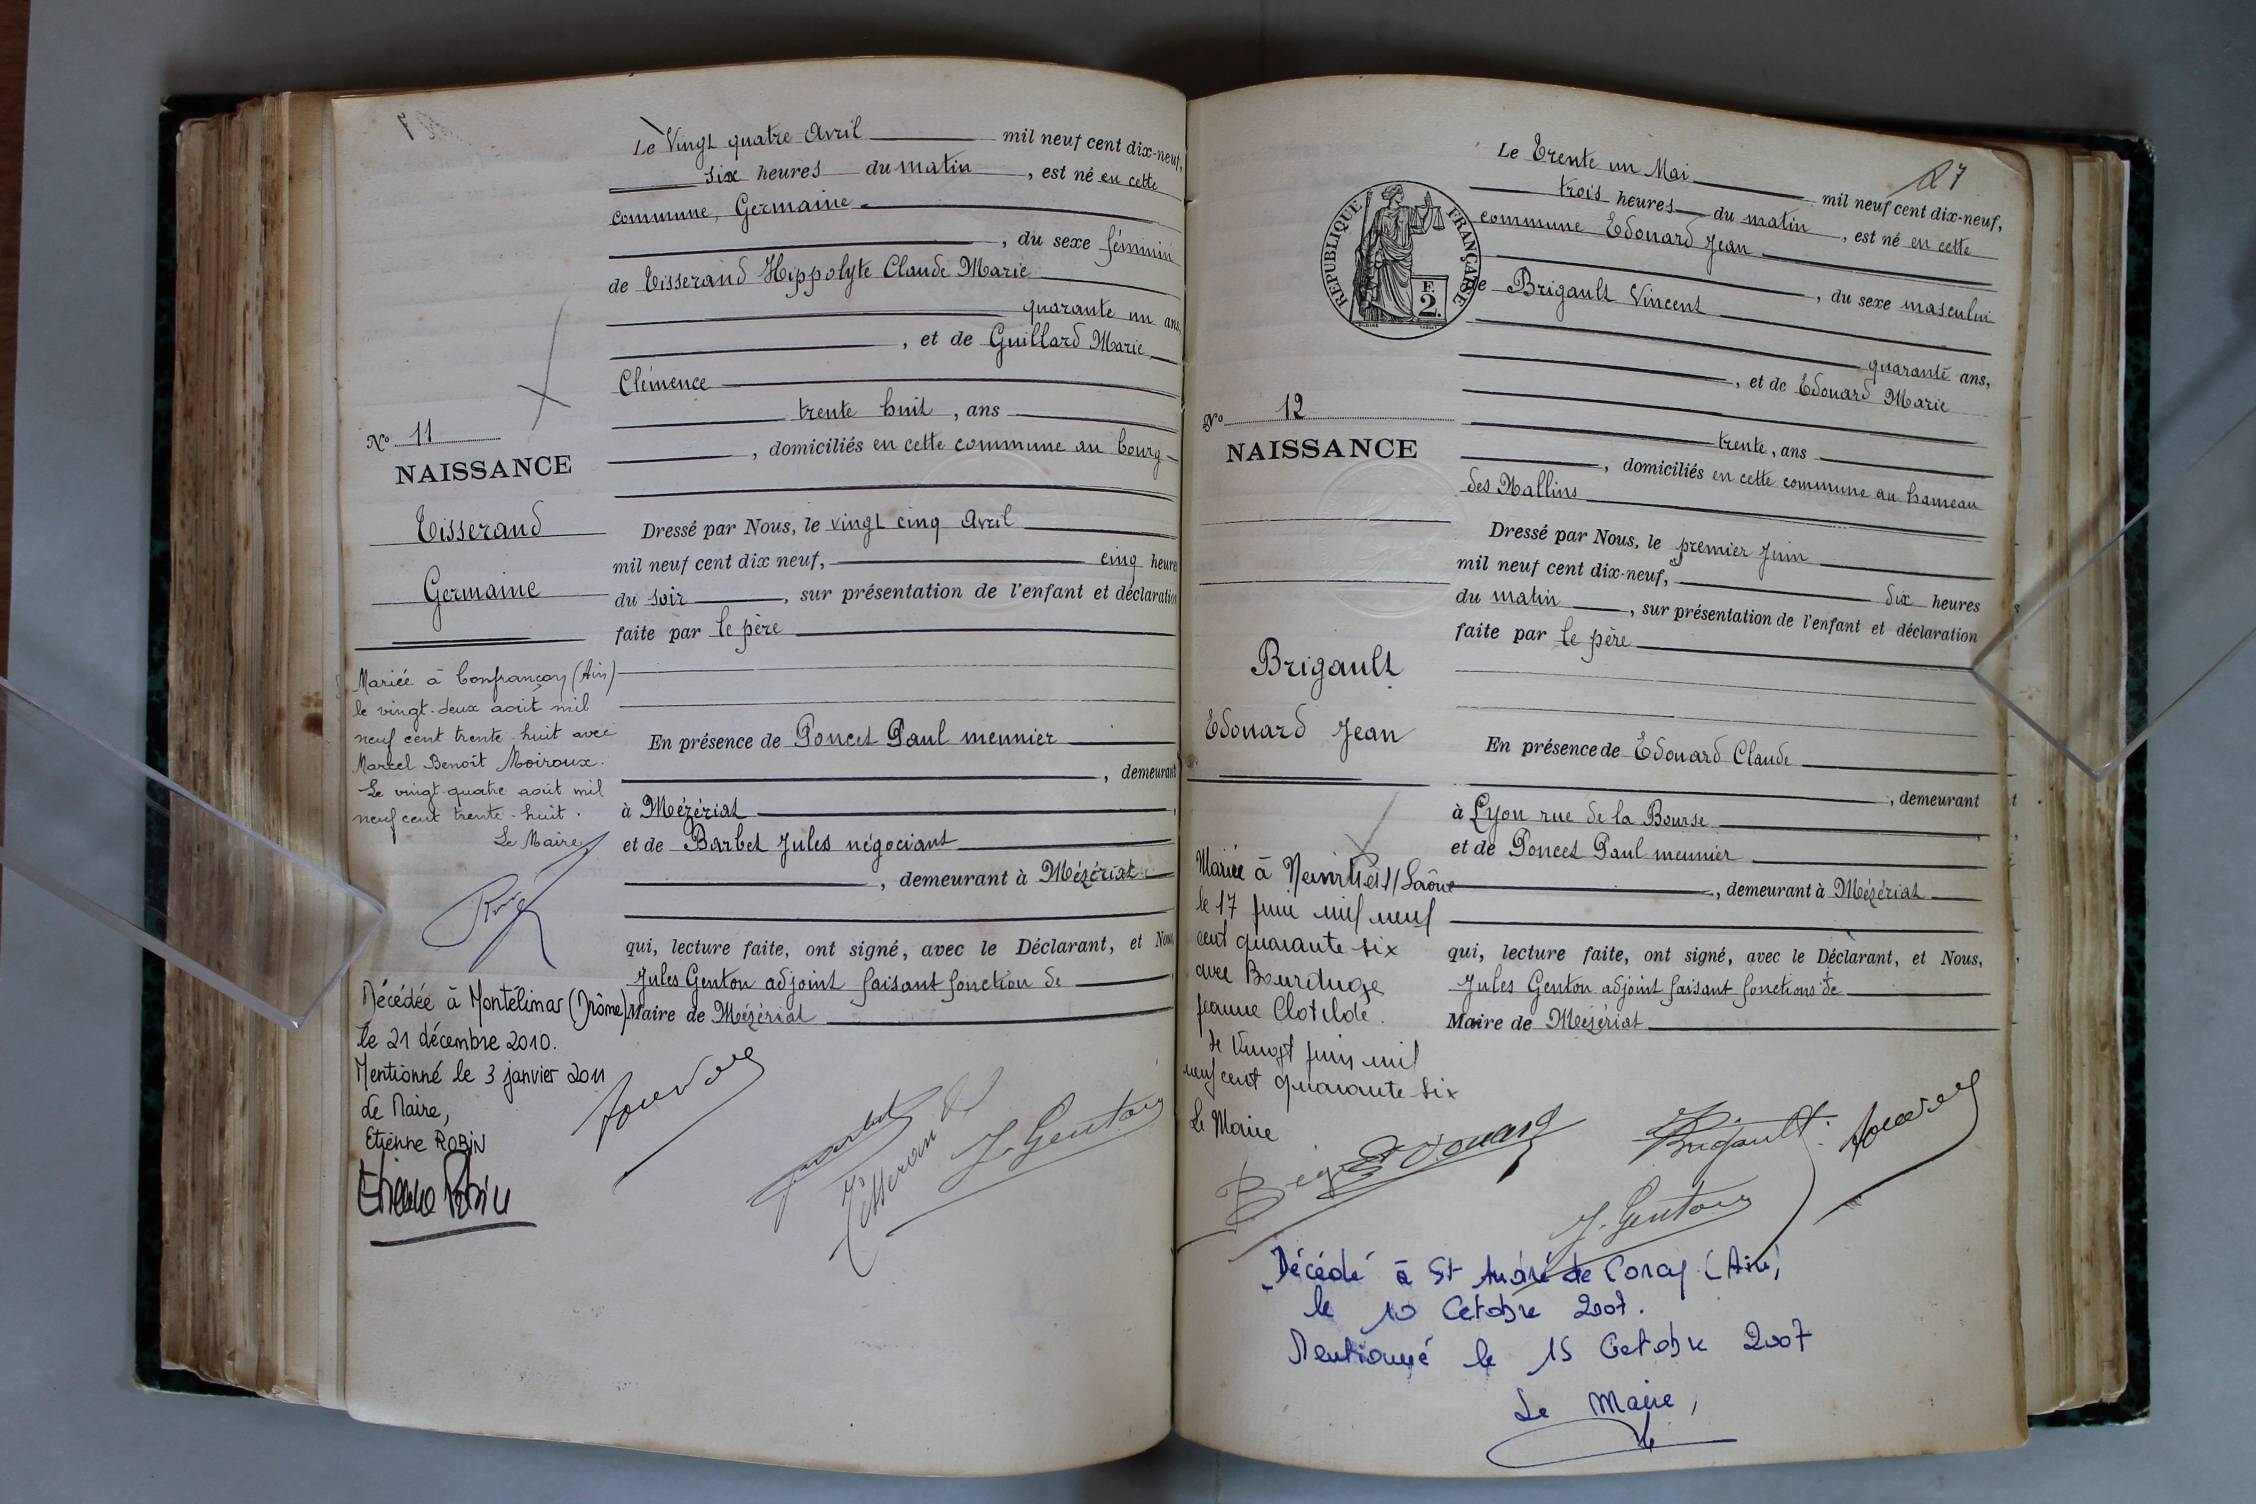 Le Vingt quatre Avril mil neuf cent dix-neuf,
six heures du matin, est né en cette
commune, Germaine
, du sexe féminin
de Tisserand Hippolyte Claude Marie
quarante un ans,
, et de Guillard Marie
Clémence
trente huit, ans
, domiciliés en cette commune au bourg
Nº 11
NAISSANCE
Tisserand
Germaine
Dressé par Nous, le vingt cinq Avril
mil neuf cent dix neuf, cinq heures
du soir, sur présentation de l'enfant et déclaration
faite par le père
En présence de Poncet Paul meunier
, demeurant
à Mézériat,
et de Barbet Jules négociant
, demeurant à Mézériat
qui, lecture faite, ont signé, avec le Déclarant, et Nous,
Jules Genton adjoint faisant fonction de
Maire de Mézériat
Mariée à Confrançon (Ain)
le vingt-deux août mil
neuf cent trente-huit avec
Marcel Benoît Moiroux.
Le vingt-quatre août mil
neuf cent trente-huit.
Le Maire
Décédée à Montélimar (Drôme)
le 21 décembre 2010.
Mentionné le 3 janvier 2011
Le Maire,
Etienne ROBIN
Etienne Robin
Barbet
Tisserand
J. Genton
27
Le Trente un Mai mil neuf cent dix-neuf,
trois heures du matin, est né en cette
commune Edouard Jean
, du sexe masculin
de Brigault Vincent
quarante ans,
, et de Edouard Marie
trente, ans
, domiciliés en cette commune au hameau
des Mallins
RÉPUBLIQUE FRANÇAISE
F.
2.
Nº 12
NAISSANCE
Brigault
Edouard Jean
Dressé par Nous, le premier Juin
mil neuf cent dix-neuf, dix heures
du matin, sur présentation de l'enfant et déclaration
faite par le père
En présence de Edouard Claude
, demeurant
à Lyon rue de la Bourse
et de Poncet Paul meunier
, demeurant à Mézériat
qui, lecture faite, ont signé, avec le Déclarant, et Nous,
Jules Genton adjoint faisant fonctions de
Maire de Mézériat
Mariée à s/Saône
le 17 juin mil neuf
cent quarante six
avec
Jeanne Clotilde.
le Vingt juin mil
neuf cent quarante six
Le Maire
Edouard
Brigault
J. Genton
Décédé à St André de Corcy (Ain)
le 10 Octobre 2007.
Mentionné le 15 Octobre 2007
Le Maire,